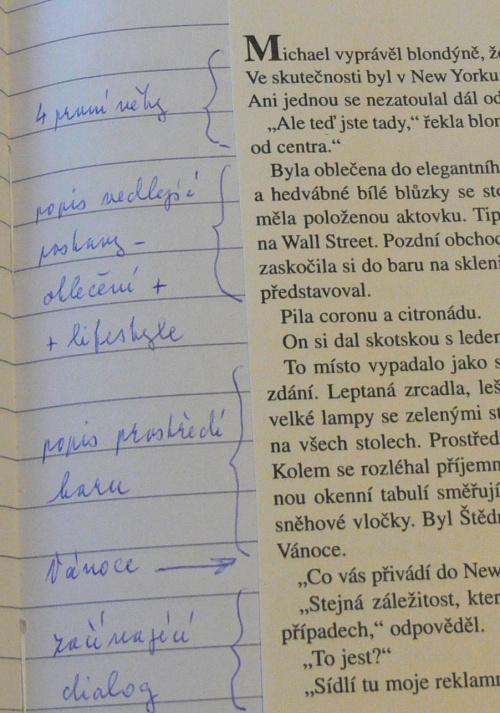 4 první věty
popis vedlejší
postavy –
oblečení +
+ lifestyle
popis prostředí
baru
Vánoce
začínající
dialog
Michael vyprávěl blondýně, že
Ve skutečnosti byl v New Yorku
Ani jednou se nezatoulal dál od
„Ale teď jste tady,“ řekla blon
od centra.“
Byla oblečena do elegantníh
a hedvábné bílé blůzky se sto
měla položenou aktovku. Tip
na Wall Street. Pozdní obchod
zaskočila si do baru na skleni
představoval.
Pila coronu a citronádu.
On si dal skotskou s leder
To místo vypadalo jako s
zdání. Leptaná zrcadla, leš
velké lampy se zelenými st
na všech stolech. Prostřed
Kolem se rozléhal příjemn
nou okenní tabulí směřují
sněhové vločky. Byl Štěd
Vánoce.
„Co vás přivádí do New
„Stejná záležitost, kter
případech,“ odpověděl.
„To jest?“
„Sídlí tu moje reklamn